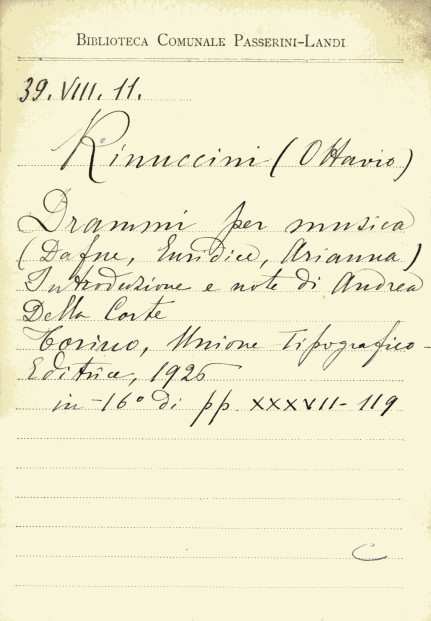 BIBLIOTECA COMUNALE PASSERINI-LANDI
39. VIII. 11.
Rinuccini (Ottavio)
Drammi per musica
(Dafne, Euridice, Arianna)
Introduzione e note di Andrea
Della Corte
Torino, Unione Tipografico-
Editrice, 1926
in-16° di pp XXXVII-119
C